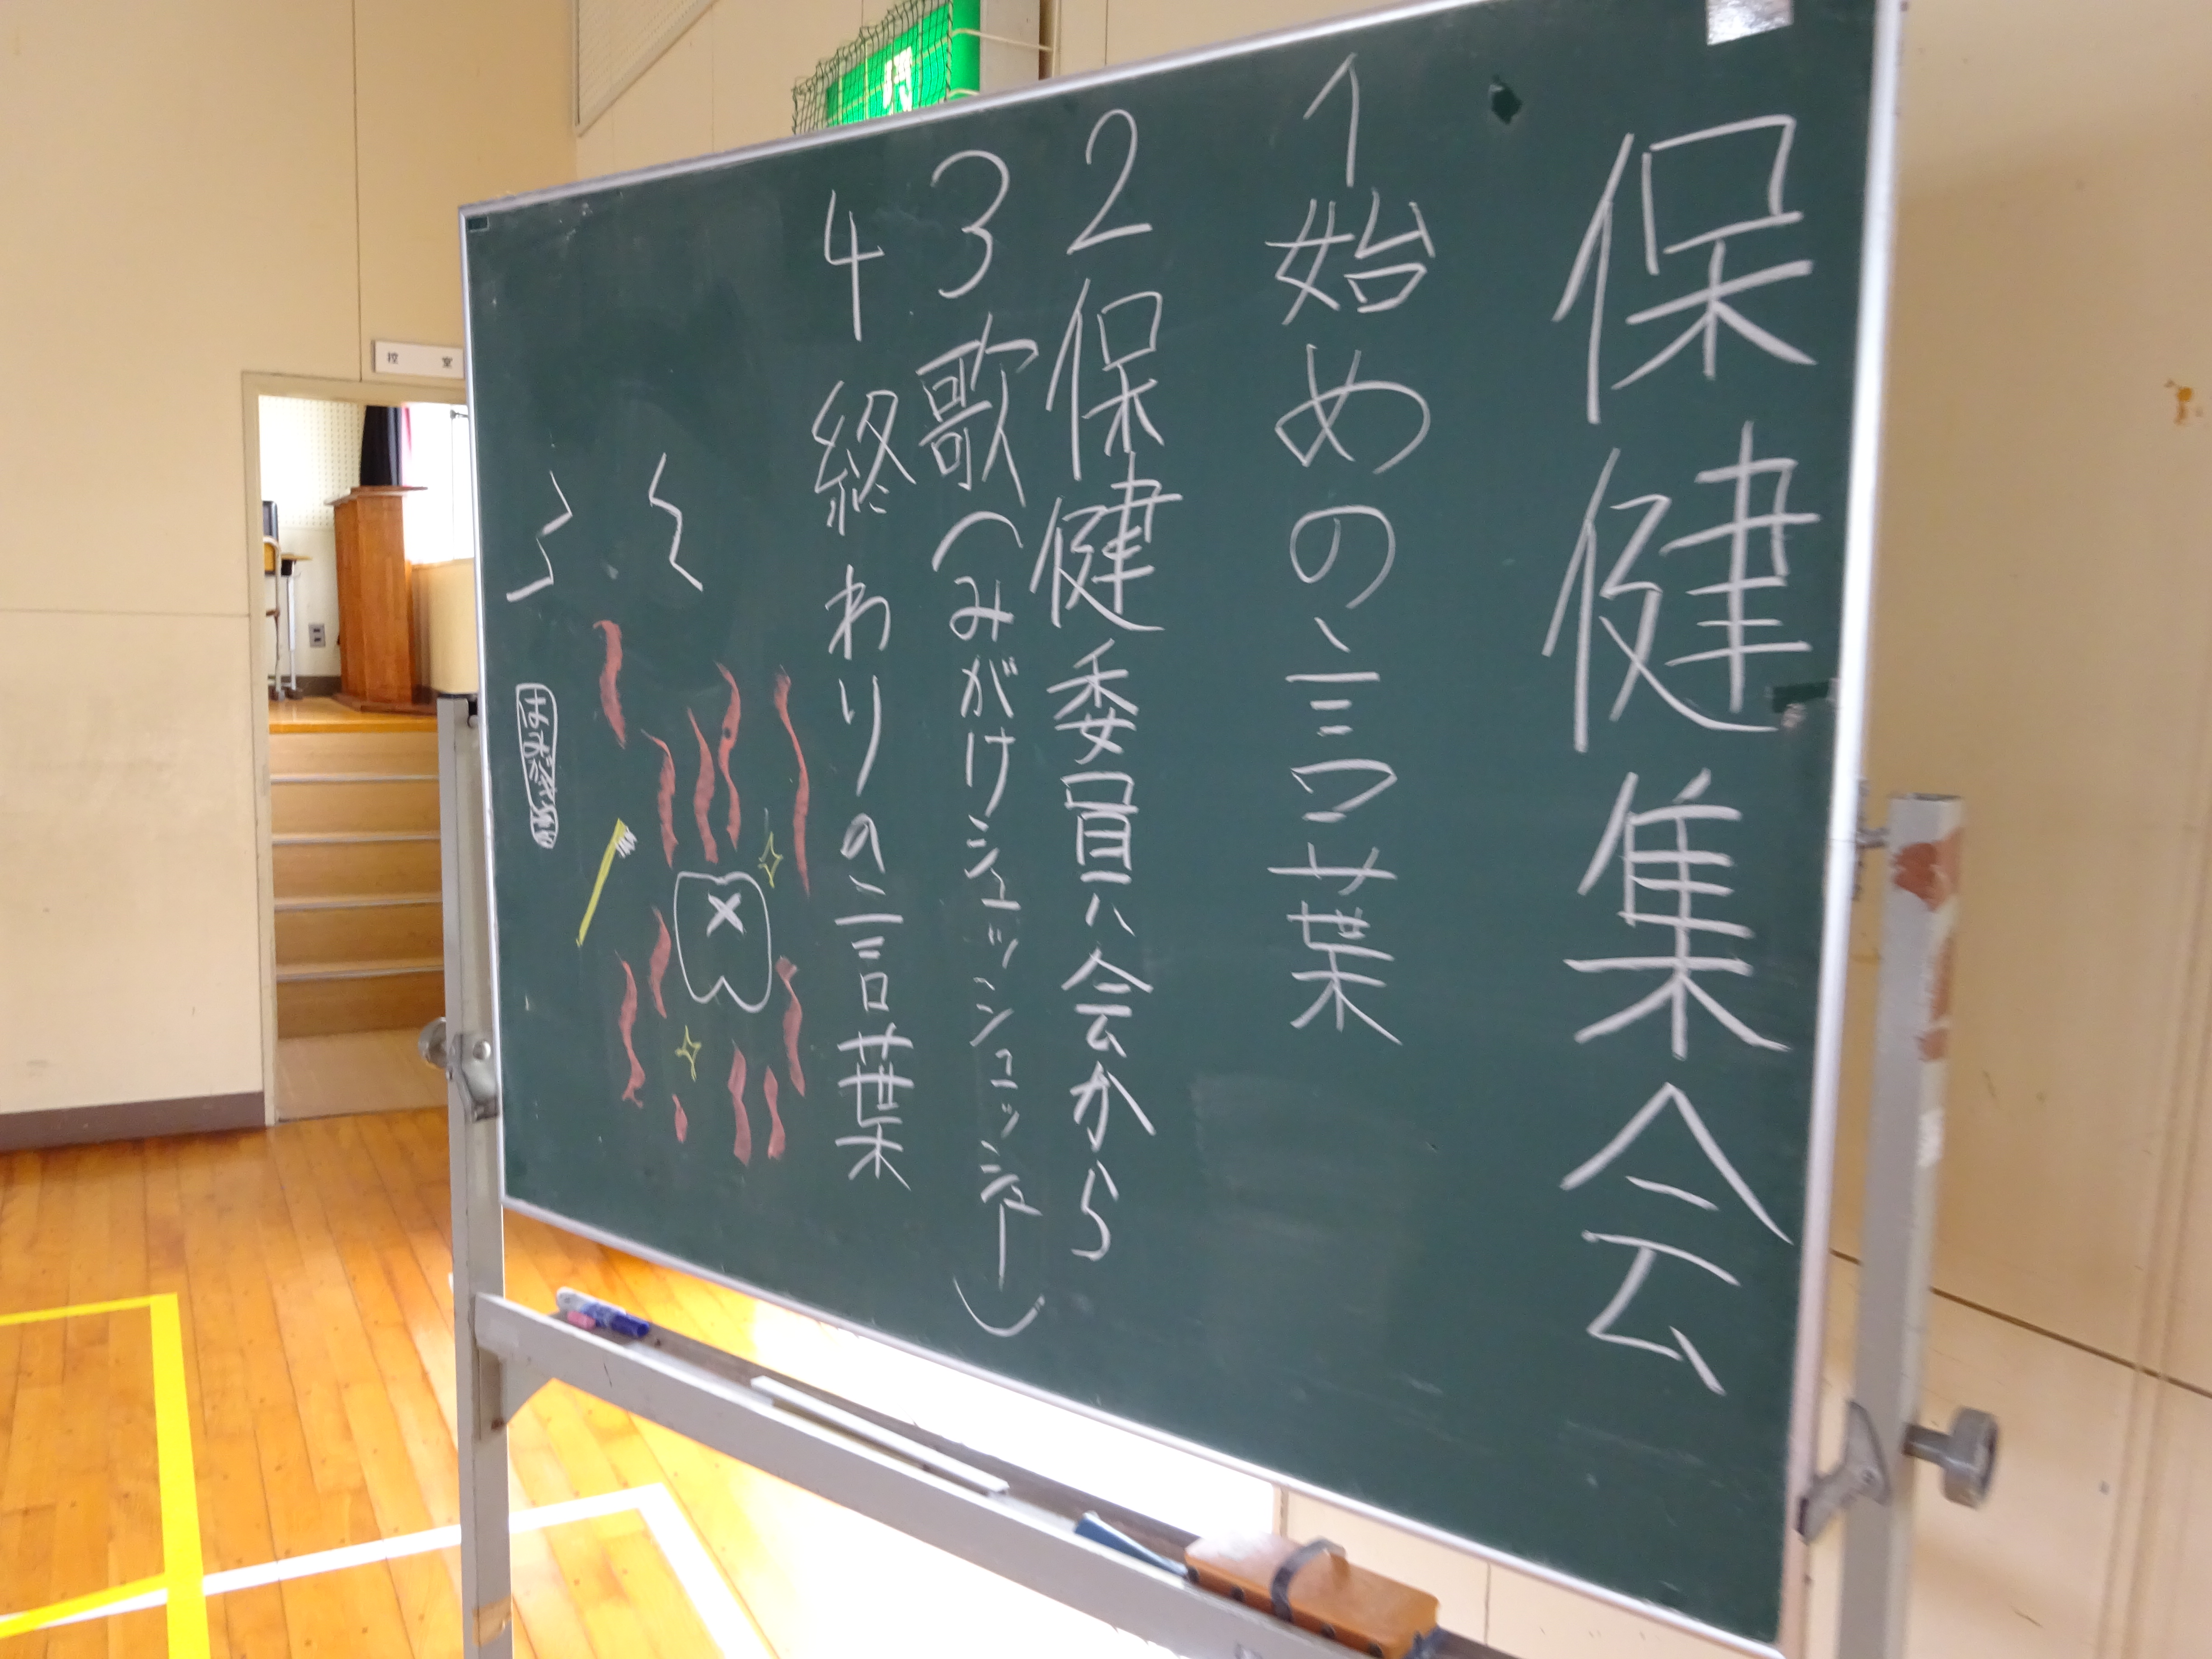 保健集会
1 始めの言葉
2 保健委員会から
3 歌(みがけシュッシュッシュー)
4 終わりの言葉
控室